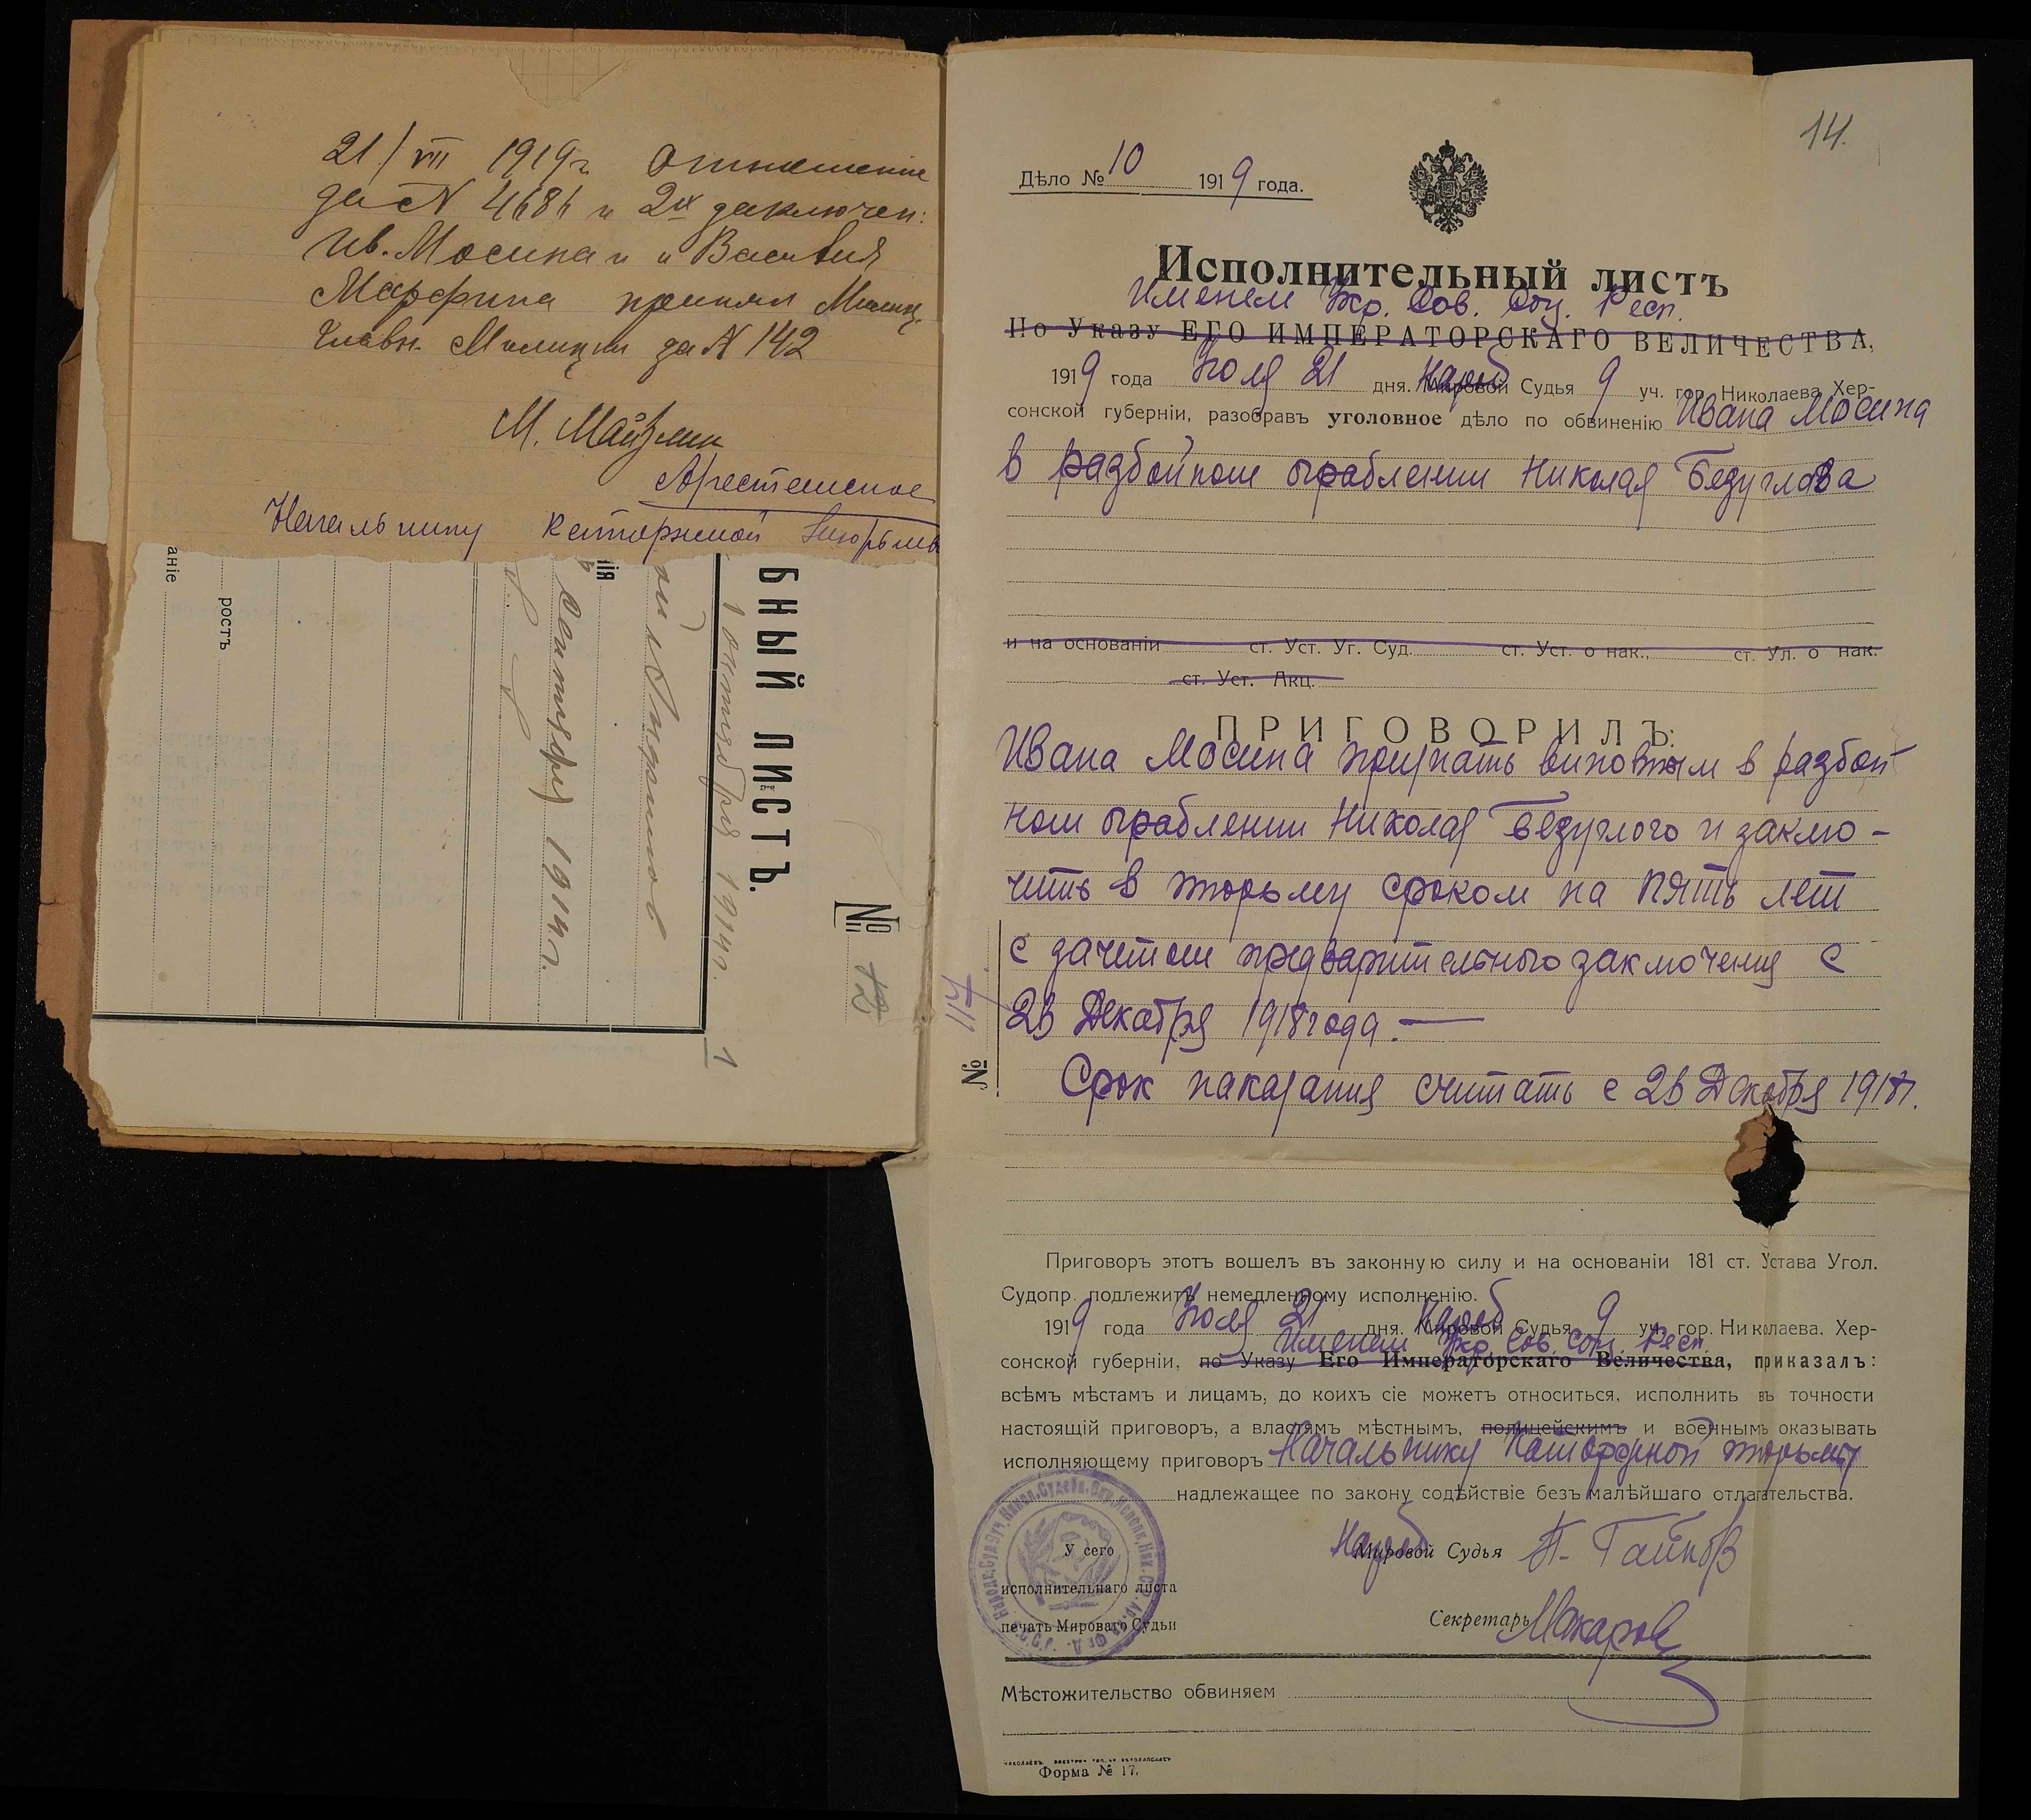 21/VII 1919 г. Отношение
за № 4686 и 2х заключен:
Ив. Мосина и и Василия
Марфина принял Милиц.
Главн. Милиции за № 142
М. Майзлин
Арестантское
Начальнику каторжной тюрьмы
БНЫЙ ЛИСТЪ.
№ 12
1 октября 1914 г.
нія
сентября 1914 г.
ростъ
аніе
1
14.
Дѣло № 10 1919 года.
Исполнительный листъ
Именем Укр. Сов. Соц. Респ.
По Указу ЕГО ИМПЕРАТОРСКАГО ВЕЛИЧЕСТВА,
1919 года Июля 21 дня. Народ Мировой Судья 9 уч. гор. Николаева Хер-
сонской губерніи, разобравъ уголовное дѣло по обвиненію Ивана Мосина
в разбойном ограблении Николая Безуглова
и на основаніи ст. Уст. Уг. Суд. ст. Уст. о нак., ст. Ул. о нак.
ст. Уст. Акц.
ПРИГОВОРИЛЪ:
Ивана Мосина признать виновным в разбой-
ном ограблении Николая Безуглого и заклю-
чить в тюрьму сроком на пять лет
с зачетом предварительного заключения с
23 Декабря 1918 года. —
Срок наказания считать с 23 Декабря 1918 г.
№ 114
Приговоръ этотъ вошелъ въ законную силу и на основаніи 181 ст. Устава Угол.
Судопр. подлежитъ немедленному исполненію.
1919 года Июля 21 дня. Народ Мировой Судья 9 уч. гор. Николаева. Хер-
Именем Укр. Сов. Соц. Респ.
сонской губерніи, по Указу Его Императорскаго Величества, приказалъ:
всѣмъ мѣстамъ и лицамъ, до коихъ сіе можетъ относиться, исполнить въ точности
настоящій приговоръ, а властямъ мѣстнымъ, полицейскимъ и военнымъ оказывать
исполняющему приговоръ Начальнику Каторжной тюрьмы
надлежащее по закону содѣйствіе безъ малѣйшаго отлагательства.
Народ Мировой Судья
У сего
исполнительнаго листа
печать Мироваго Судьи
Секретарь Макаров
Мѣстожительство обвиняем
Форма № 17.